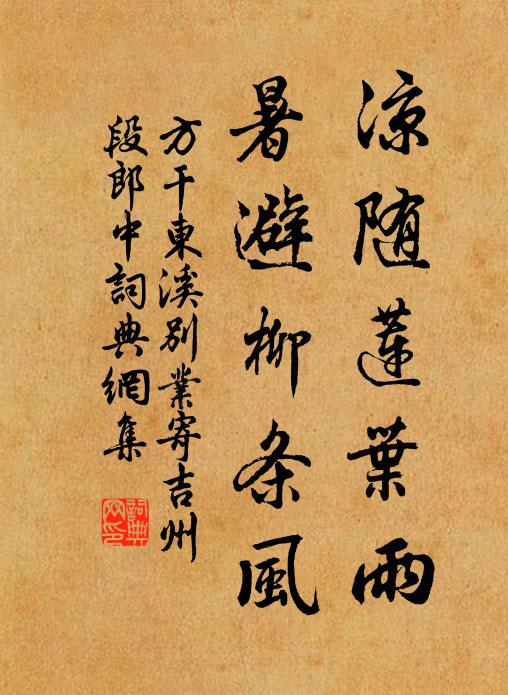 涼随蓮葉雨
暑避柳条風
方干東溪別業寄吉州
段郎中詞典網集
詞典
网印